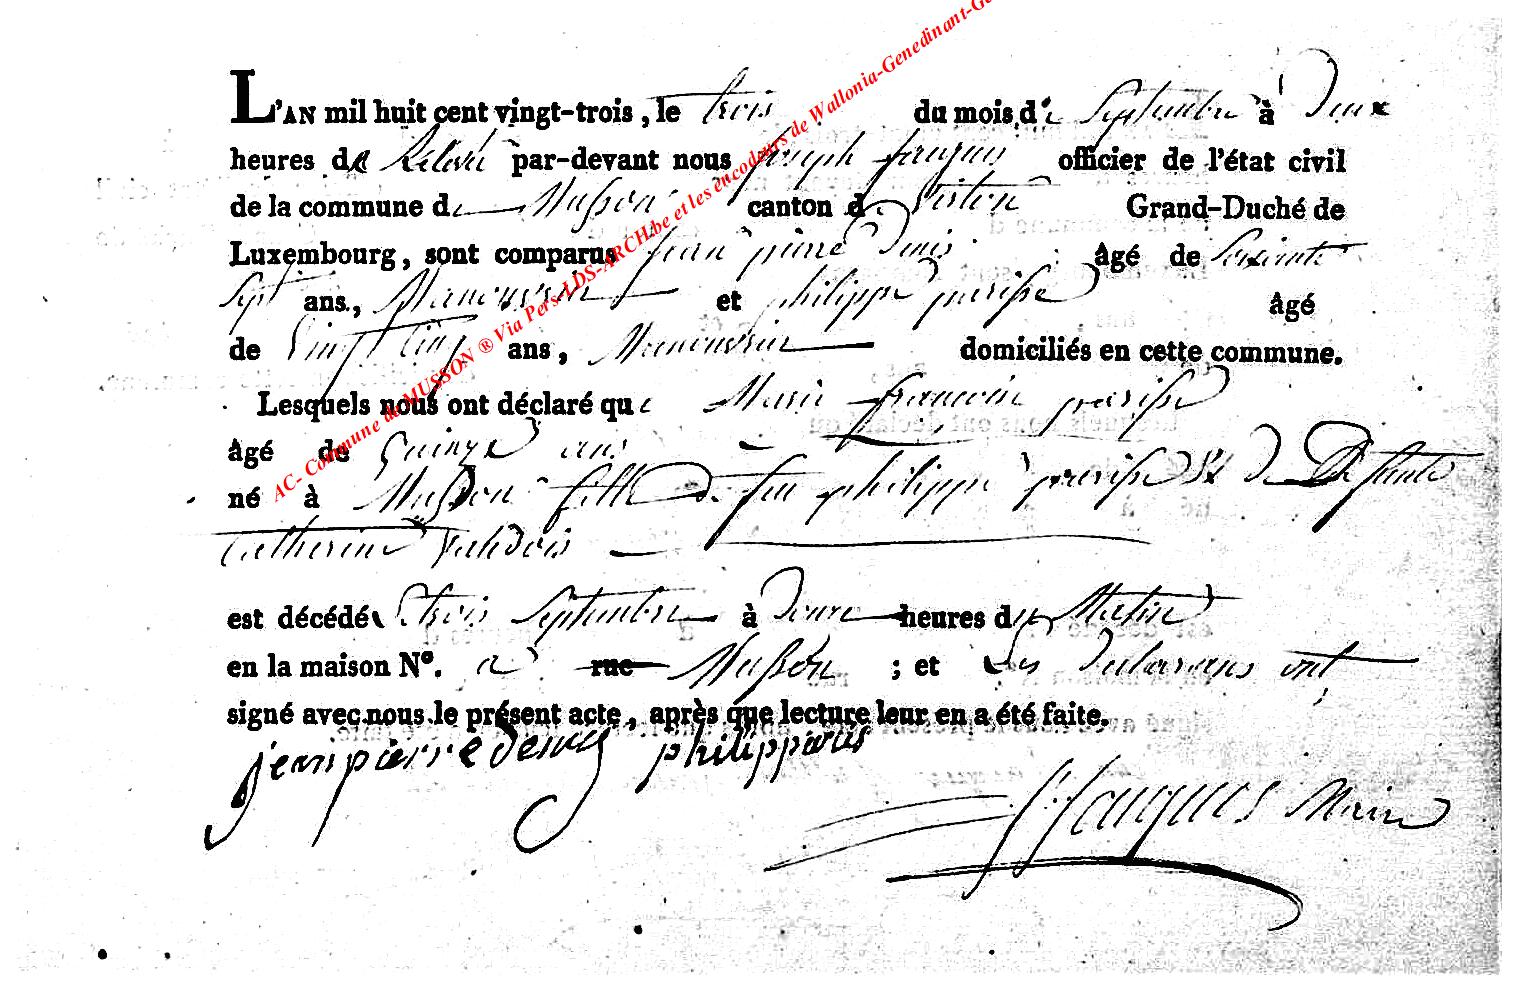 L'AN mil huit cent vingt-trois, le trois du mois de Septembre à Deux
heures de Relevé par-devant nous Joseph Jacques officier de l'état civil
de la commune de Musson canton de Virton Grand-Duché de
Luxembourg, sont comparus Jean pierre Denis âgé de Soixante
Sept ans, Manouvrier et philippe parisse âgé
de Vingt Cinq ans, Manouvrier domiciliés en cette commune.
Lesquels nous ont déclaré que Marie francoise parisse
âgé de Quinze ans
né à Musson fille De feu philippe parisse & De Défunte
Catherine
est décédé trois Septembre à heures du Matin
en la maison N°. a rue Musson ; et Les Declarans ont
signé avec nous le présent acte, après que lecture leur en a été faite.
jean pierre denis philipparis
J. Jacques Maire
AC- Commune de MUSSON ® Via Pers-LDS-ARCH.be et les encodeurs de Wallonia-Genedinant-Ge